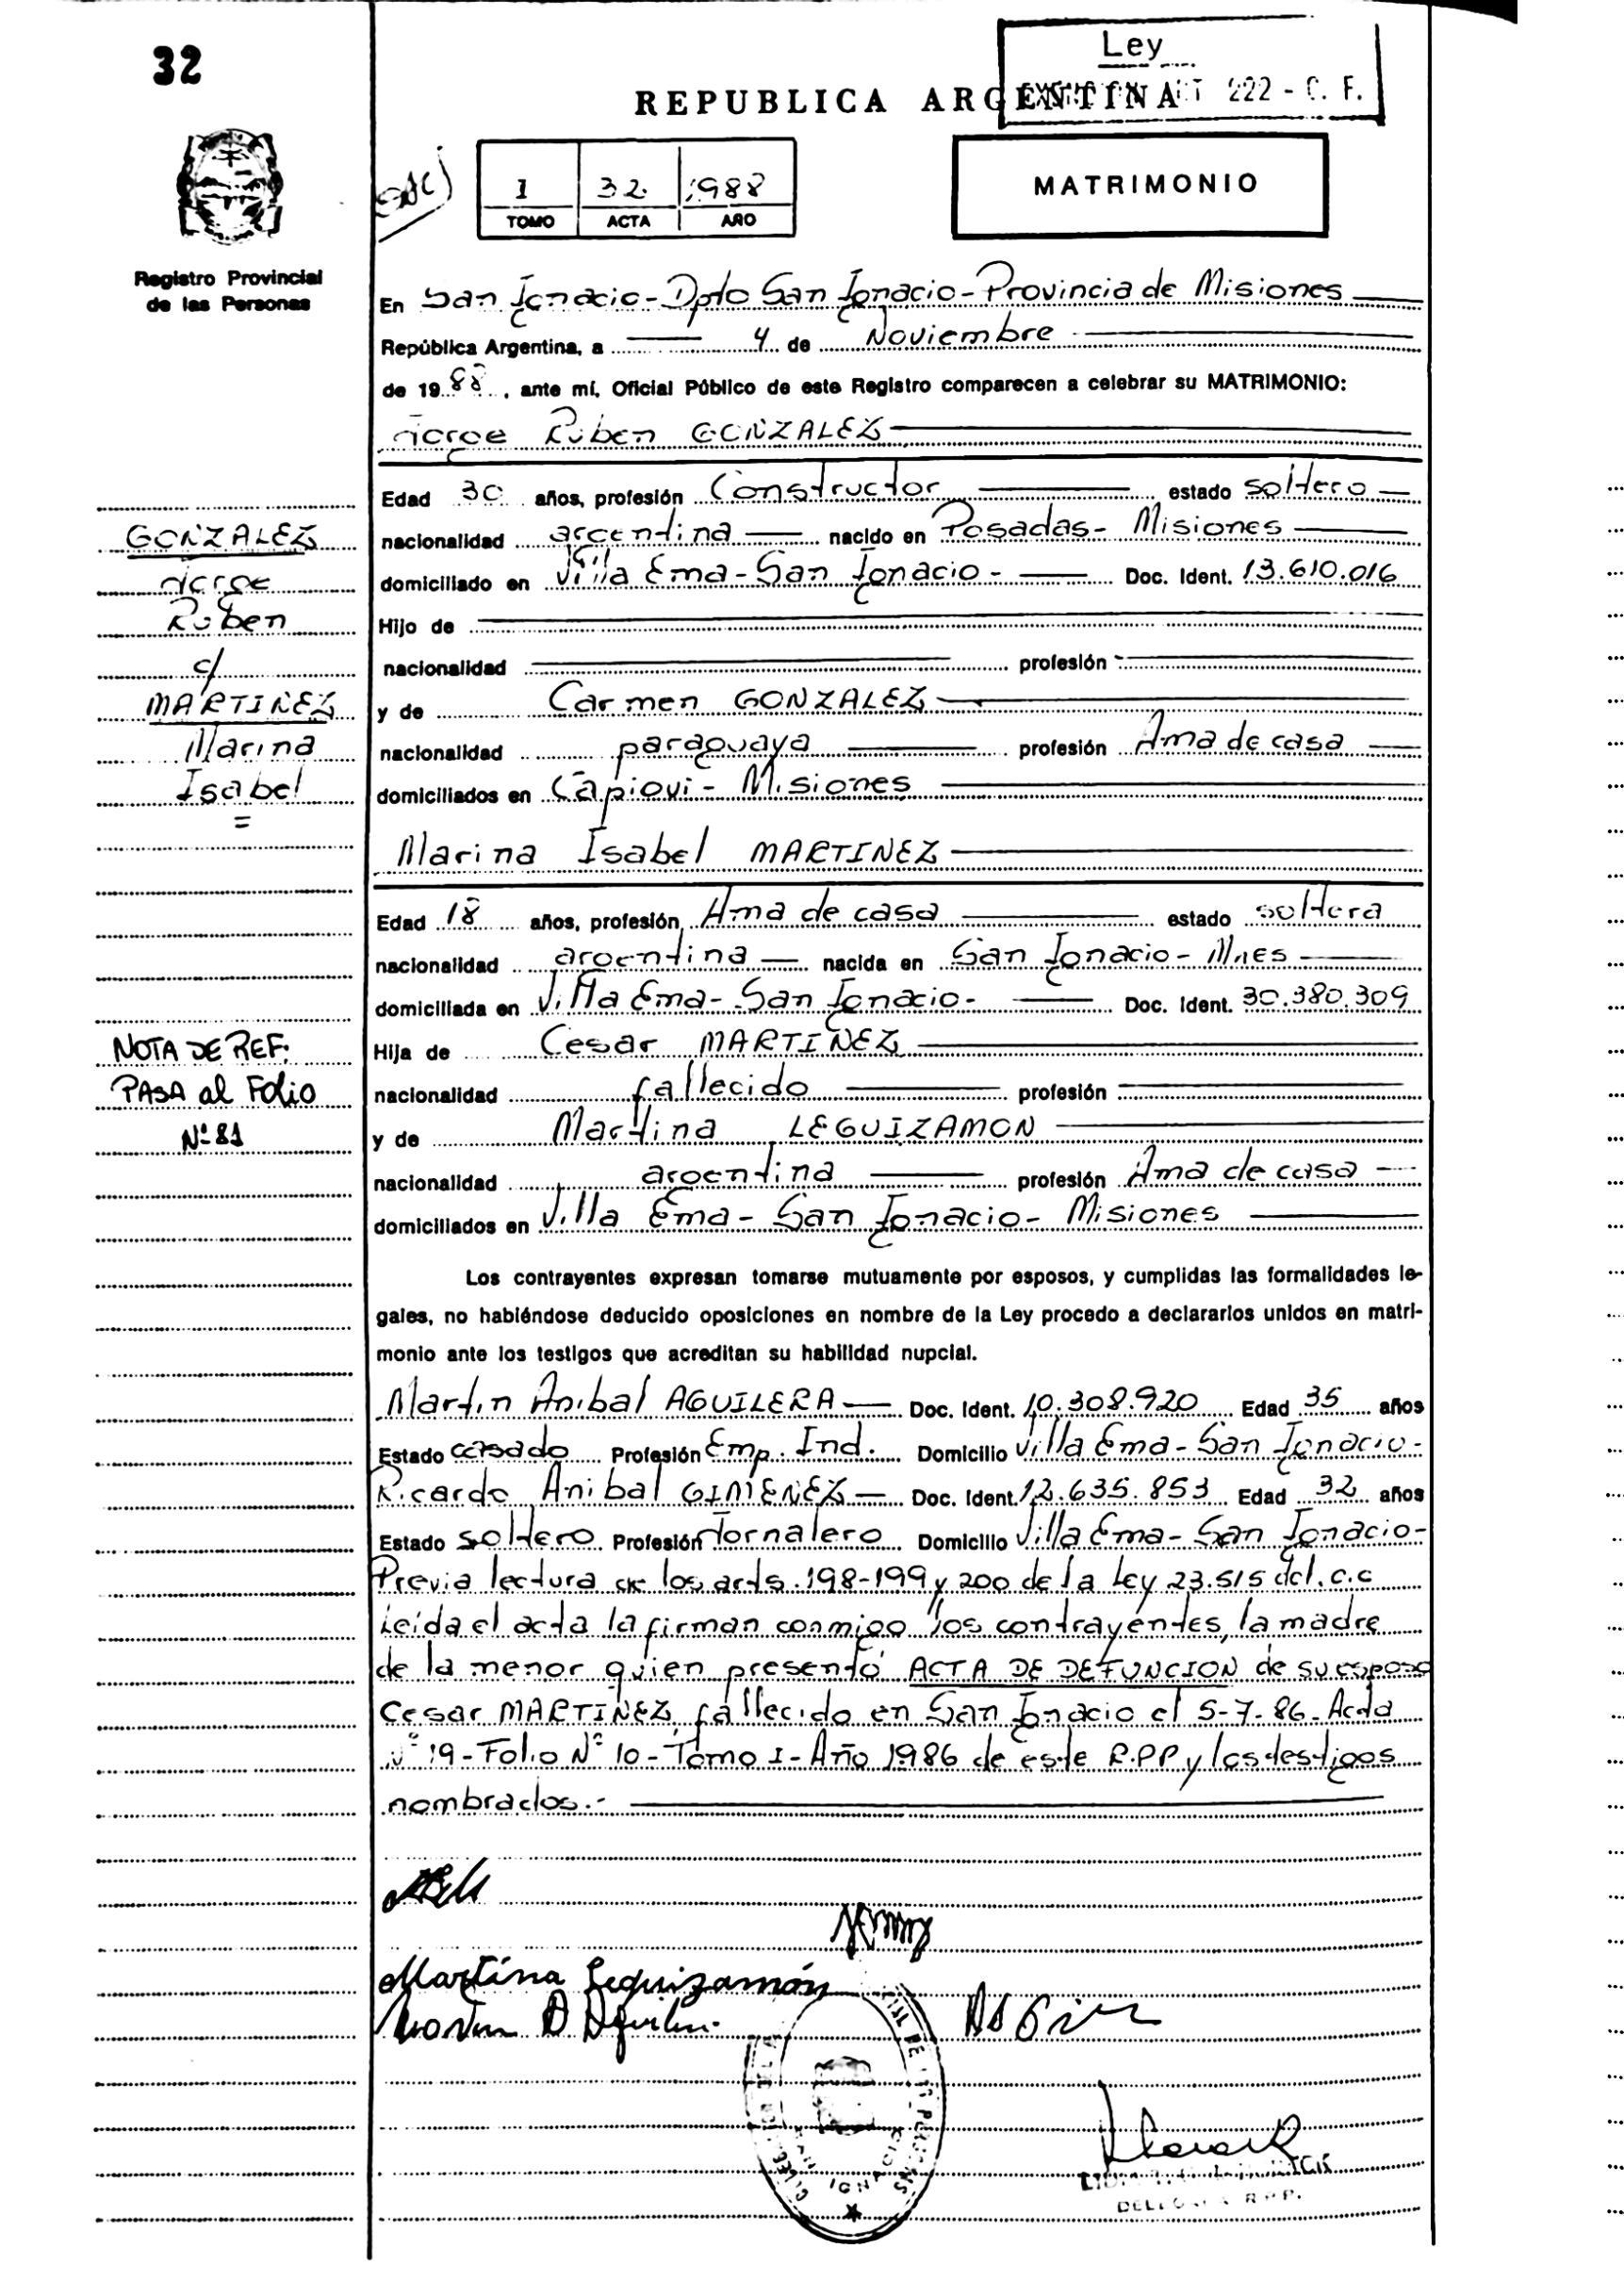 32
Ley
REPUBLICA ARGENTINA 222 - C. F.
1 32 1988
TOMO ACTA AÑO
MATRIMONIO
Registro Provincial
de las Personas
En San Ignacio - Dpto San Ignacio - Provincia de Misiones
República Argentina, a 4 de Noviembre
de 1988, ante mí, Oficial Público de este Registro comparecen a celebrar su MATRIMONIO:
Jorge Ruben GONZALEZ
Edad 30 años, profesión Constructor estado soltero
nacionalidad argentina nacido en Posadas - Misiones
domiciliado en Villa Ema - San Ignacio - Doc. Ident. 13.610.016
Hijo de
nacionalidad profesión
y de Carmen GONZALEZ
nacionalidad paraguaya profesión Ama de casa
domiciliados en Capiovi - Misiones
GONZALEZ
Jorge
Ruben
c/
MARTINEZ
Marina
Isabel
=
Marina Isabel MARTINEZ
Edad 18 años, profesión Ama de casa estado soltera
nacionalidad argentina nacida en San Ignacio - Mnes
domiciliada en Villa Ema - San Ignacio - Doc. Ident. 30.380.309
Hija de Cesar MARTINEZ
nacionalidad fallecido profesión
y de Martina LEGUIZAMON
nacionalidad argentina profesión Ama de casa
domiciliados en Villa Ema - San Ignacio - Misiones
NOTA DE REF:
PASA al Folio
Nº 81
Los contrayentes expresan tomarse mutuamente por esposos, y cumplidas las formalidades le-
gales, no habiéndose deducido oposiciones en nombre de la Ley procedo a declararlos unidos en matri-
monio ante los testigos que acreditan su habilidad nupcial.
Martin Anibal AGUILERA Doc. Ident. 10.308.920 Edad 35 años
Estado casado Profesión Emp. Ind. Domicilio Villa Ema - San Ignacio -
Ricardo Anibal GIMENEZ Doc. Ident. 12.635.853 Edad 32 años
Estado soltero Profesión Jornalero Domicilio Villa Ema - San Ignacio -
Previa lectura de los arts. 198-199 y 200 de la Ley 23.515 del. C.C
Leída el acta la firman conmigo los contrayentes, la madre
de la menor quien presentó ACTA DE DEFUNCION de su esposo
Cesar MARTINEZ, fallecido en San Ignacio el 5-7-86 - Acta
Nº 19 - Folio Nº 10 - Tomo I - Año 1986 de este R.P.P y los testigos
nombrados.-
Martína Leguizamón
SAN IGNACIO
R.P.P.